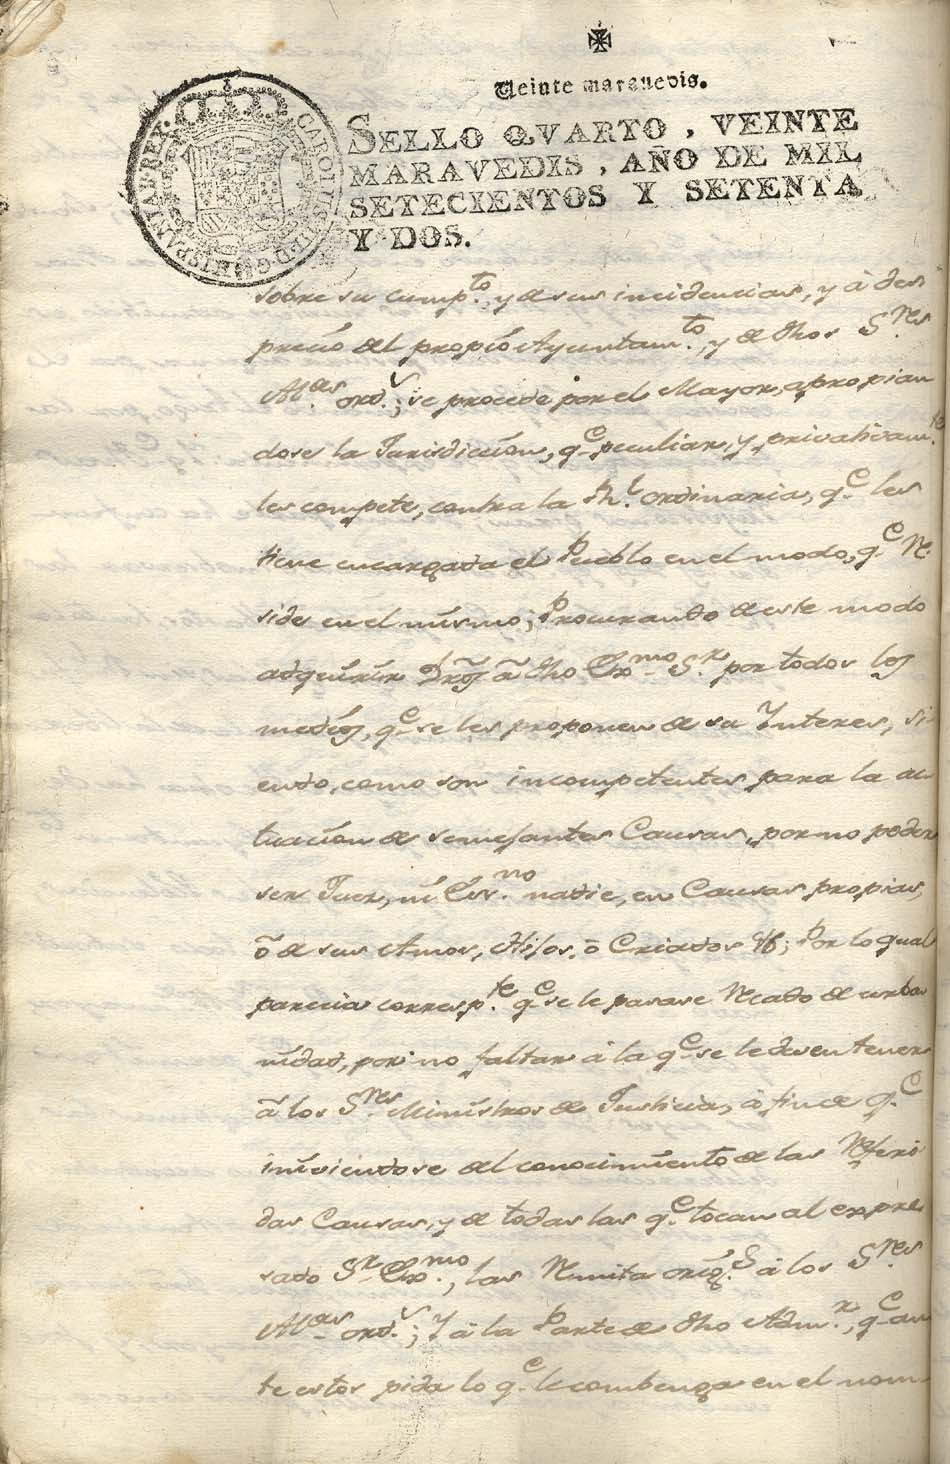 Veinte maravedis.
SELLO QVARTO, VEINTE
MARAVEDIS, AÑO DE MIL
SETECIENTOS Y SETENTA
Y DOS.
CAROLUS III D G HISPANIAR REX
sobre su cumpto. y de sus incidencias, y à des
precio del propio Ayuntamto. y de dhos Sres.
Alces. ords.; se procede por el Mayor, apropian
dose la Jurisdicion, qe. peculiar, y privativamte.
les compete, contra la Rl. ordinaria, qe. les
tiene encargada el Pueblo en el modo, qe. Re
side en el mismo; Procurando de este modo
adquirir dros â dho Exmo. Sr. por todos los
medios, qe. se les proponen de su Interes, si
endo, como son incompetentes para la ac
tuacion de semejantes Causas, por no poder
ser Juez, ni Esno. nadie, en Causas propias,
ô de sus Amos, Hijos, ô Criados; Por lo qual
parecia correspte. qe. se le pasase Recado de urba
nidad, por no faltar à la qe. se le deven tener
â los Sres. Ministros de Justicia, à fin de qe.
iniviendose del conocimiento de las Referi
das Causas, y de todas las qe. tocan al expre
sado Sr. Exmo., las Remita origs. à los Sres.
Alces. ords.; Y à la Parte de dho Admr., qe. an
te estos pida lo qe. le combenga en el nom